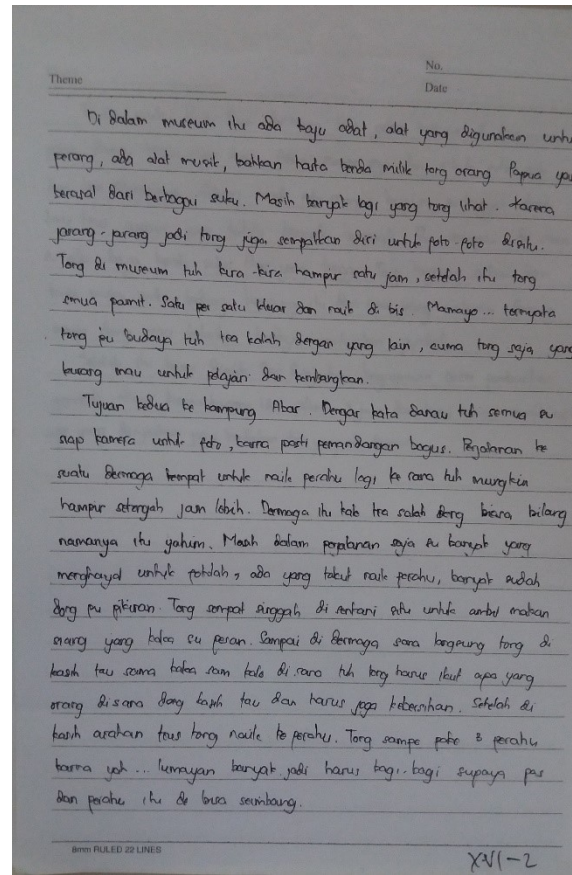 No.
Theme
Date
Di dalam museum itu ada baju adat, alat yang digunakan untu
perang, ada alat musik, bahkan harta benda milik tong orang Papua ya
berasal dari berbagai suku. Masih banyak lagi yang tong lihat. Karena
jarang-jarang jadi tong juga sempatkan diri untuk foto-foto disitu.
Tong di museum tuh kira-kira hampir satu jam, setelah itu tong
semua pamit. Satu per satu kluar dan naik di bis. Mamayo... ternyata
tong pu budaya tuh tra kalah dengan yang lain, cuma tong saja yang
kurang mau untuk pelajari dan kembangkan.
Tujuan kedua ke kampung Abar. Dengar kata danau tuh semua su
siap kamera untuk foto, karna pasti pemandangan bagus. Perjalanan ke
suatu dermaga tempat untuk naik perahu lagi ke sana tuh mungkin
hampir setengah jam lebih. Dermaga itu kalo tra salah dong biasa bilang
namanya itu yahim. Masih dalam perjalanan saja su banyak yang
menghayal untuk fotolah, ada yang takut naik perahu, banyak sudah
dong pu pikiran. Tong sempat singgah di sentani situ untuk ambil makan
siang yang kaka su pesan. Sampai di dermaga sana langsung tong di
kasih tau sama kaka sam kalo di sana tuh tong harus ikut apa yang
orang disana dong kasih tau dan harus jaga kebersihan. Setelah di
kasih arahan trus tong naik ke perahu. Tong sampe pake 3 perahu
karna yah... lumayan banyak jadi harus bagi-bagi supaya pas
dan perahu itu de bisa seimbang.
8mm RULED 22 LINES
XVI-2